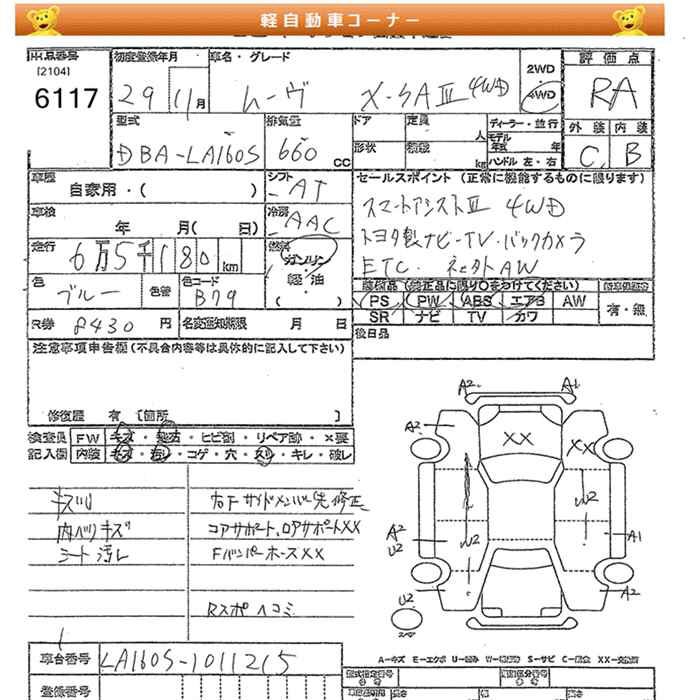 軽自動車コーナー
出品番号 [2104] 6117
初度登録年月 29年 11月
車名・グレード ムーヴ X-SAⅢ 4WD
2WD 4WD
評価点 RA
型式 DBA-LA160S
排気量 660 CC
ドア 定員 人
形状 積載 kg
ディーラー・並行
モデル 年式 年
ハンドル 左・右
外装 内装
C B
車歴 自家用・( )
シフト AT
車検 年 月( 日)
冷房 AAC
走行 6万5千180km
燃料 ガソリン・軽油・( )
色 ブルー
色替
色コード B79
R券 8430円
名変通知期限 月 日
セールスポイント(正常に機能するものに限ります)
スマートアシストⅢ 4WD
トヨタ製ナビ・TV・バックカメラ
ETC
装備品(純正品に限り○をつけてください)
PS PW ABS エアB AW
SR ナビ TV カワ
有・無
後日品
注意事項申告欄(不具合内容等は具体的に記入して下さい)
修復歴 有 [箇所 ]
検査員 FW キズ・ ・ヒビ割・リペア跡・×要
記入欄 内装 キズ・汚レ・コゲ・穴・スリ・キレ・破レ
内ハリキズ
シート汚レ
右Fサイドメンバー先修正
コアサポート、ロアサポートXX
Fバンパーホース XX
Rスポヘコミ
A2 A1
A2 XX XX
W2
A2 U2 W2 A1
A2
U2
A-キズ E-エクボ U-凹み W-補修跡 S-サビ C-腐食 XX-交換済
車台番号 LA160S-1011215
登録番号